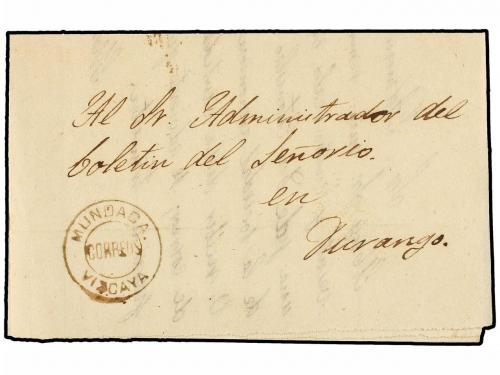 Al Sr. Administrador del
boletin del Señorio.
en
Durango.
MUNDACA.
CORREOS
VIZCAYA